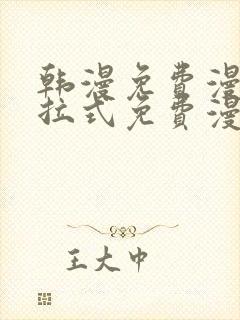 韩漫免费漫
拉式免费漫
王大中